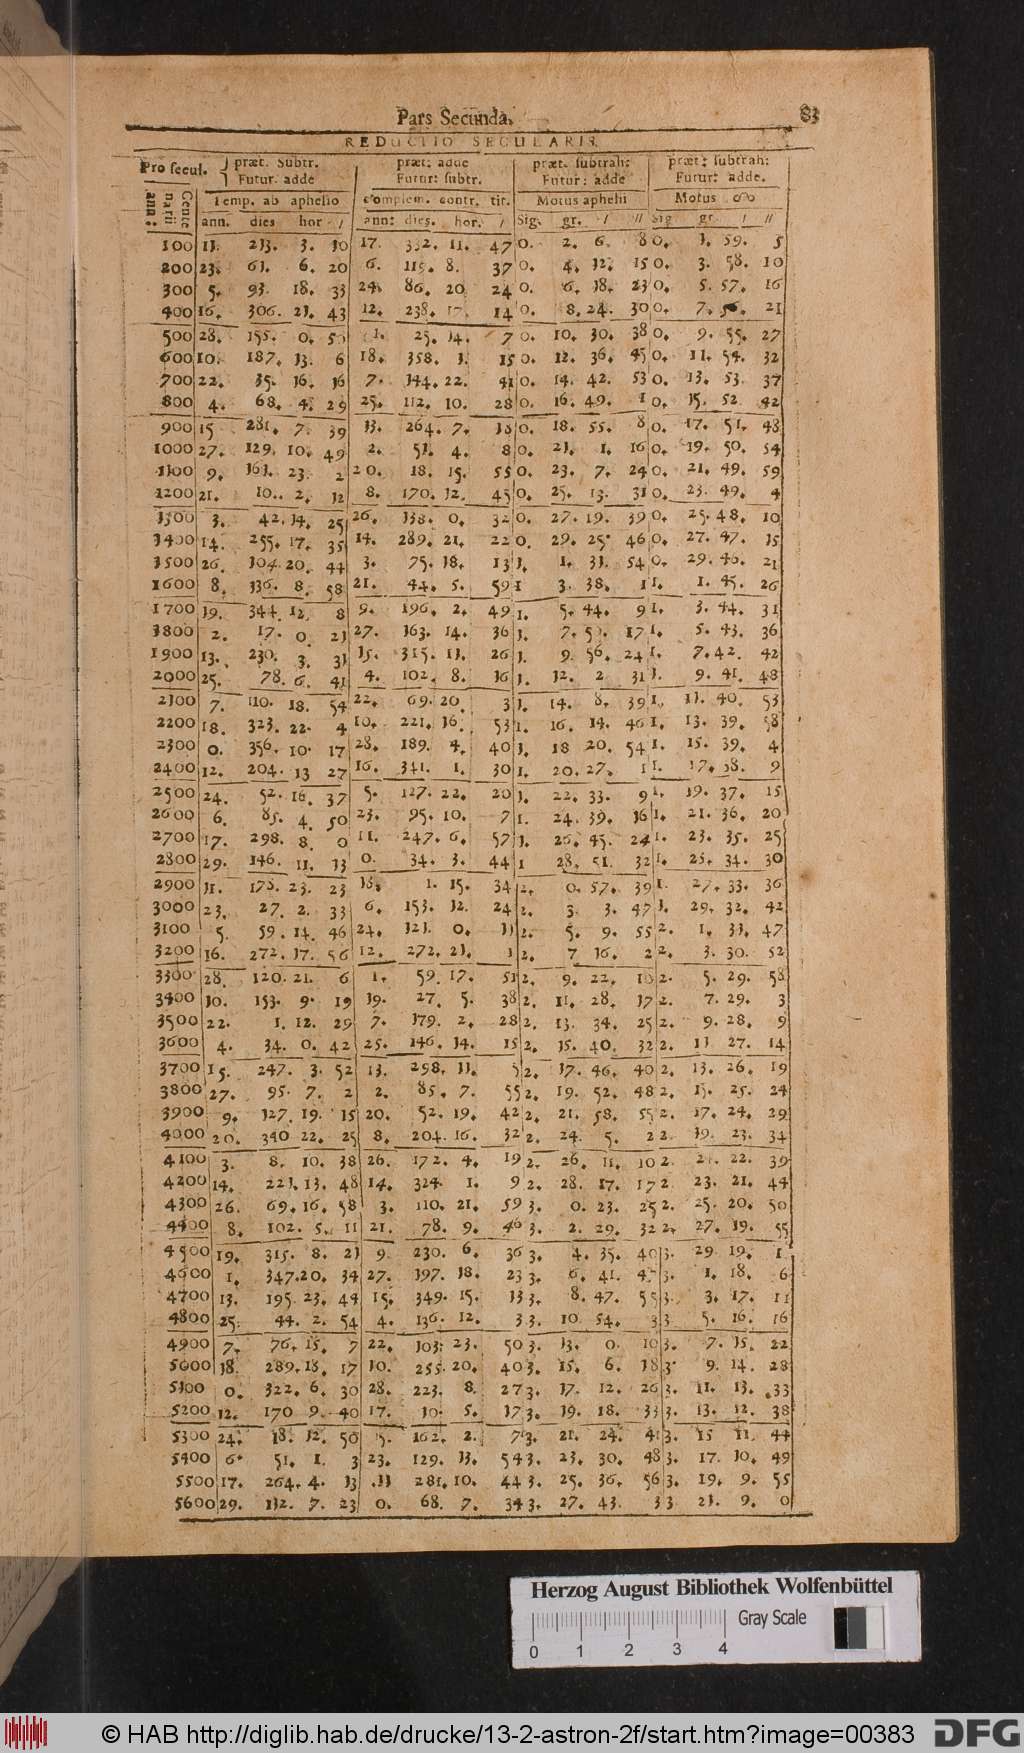 Pars Secunda. 83
REDUCTIO SECULARIS.
Pro secul. { præt. Subtr. præt: adde præt. subtrah: præt: subtrah:
Futur. adde Futur: subtr. Futur: adde Futur: adde.
Centenarii ann: Temp. ab aphelio Complem. contr. tit. Motus aphelii Motus
ann. dies hor / ann: dies. hor. / Sig. gr. / // Sig gr. / //
100 11. 213. 3. 10 17. 332. 11. 47 0. 2. 6. 8 0. 1. 59. 5
200 23. 61. 6. 20 6. 119. 8. 37 0. 4. 12. 15 0. 3. 58. 10
300 5. 93. 18. 33 24. 86. 20 24 0. 6. 18. 23 0. 5. 57. 16
400 16. 306. 21. 43 12. 238. 17. 14 0. 8. 24. 30 0. 7. 56. 21
500 28. 155. 0. 53 1. 25. 14. 7 0. 10. 30. 38 0. 9. 55. 27
600 10. 187. 13. 6 18. 358. 1. 15 0. 12. 36. 45 0. 11. 54. 32
700 22. 35. 16. 16 7. 144. 22. 41 0. 14. 42. 53 0. 13. 53. 37
800 4. 68. 4. 29 25. 112. 10. 28 0. 16. 49. 1 0. 15. 52. 42
900 15 281. 7. 39 13. 264. 7. 18 0. 18. 55. 8 0. 17. 51. 48
1000 27. 129. 10. 49 2. 51. 4. 8 0. 21. 1. 16 0. 19. 50. 54
1100 9. 161. 23. 2 20. 18. 15. 55 0. 23. 7. 24 0. 21. 49. 59
1200 21. 10.. 2. 12 8. 170. 12. 45 0. 25. 13. 31 0. 23. 49. 4
1300 3. 42. 14. 25 26. 138. 0. 32 0. 27. 19. 39 0. 25. 48. 10
1400 14. 255. 17. 35 14. 289. 21. 22 0. 29. 25. 46 0. 27. 47. 15
1500 26. 104. 20. 44 3. 75. 18. 13 1. 1. 31. 54 0. 29. 46. 21
1600 8. 136. 8. 58 21. 44. 5. 59 1 3. 38. 1 1. 1. 45. 26
1700 19. 344. 12. 8 9. 196. 2. 49 1. 5. 44. 9 1. 3. 44. 31
1800 2. 17. 0 21 27. 163. 14. 36 1. 7. 50. 17 1. 5. 43. 36
1900 13. 230. 3. 31 15. 315. 11. 26 1. 9. 56. 24 1. 7. 42. 42
2000 25. 78. 6. 41 4. 102. 8. 16 1. 12. 2 31 1. 9. 41. 48
2100 7. 110. 18. 54 22. 69. 20 3 1. 14. 8. 39 1. 11. 40. 53
2200 18. 323. 22. 4 10. 221. 16. 53 1. 16. 14. 46 1. 13. 39. 58
2300 0. 356. 10. 17 28. 189. 4. 40 1. 18 20. 54 1. 15. 39. 4
2400 12. 204. 13 27 16. 341. 1. 30 1. 20. 27. 1 1. 17. 38. 9
2500 24. 52. 16. 37 5. 127. 22. 20 1. 22. 33. 9 1. 19. 37. 15
2600 6. 85. 4. 50 23. 95. 10. 7 1. 24. 39. 16 1. 21. 36. 20
2700 17. 298. 8. 0 11. 247. 6. 57 1. 26. 45. 24 1. 23. 35. 25
2800 29. 146. 11. 13 0. 34. 3. 44 1 28. 51. 32 1. 25. 34. 30
2900 11. 178. 23. 23 18. 1. 15. 34 2. 0. 57. 39 1. 27. 33. 36
3000 23. 27. 2. 33 6. 153. 12. 24 2. 3. 3. 47 1. 29. 32. 42
3100 5. 59. 14. 46 24. 121. 0. 11 2. 5. 9. 55 2. 1. 31. 47
3200 16. 272. 17. 56 12. 272. 21. 1 2. 7 16. 2 2. 3. 30. 52
3300 28. 120. 21. 6 1. 59. 17. 51 2. 9. 22. 10 2. 5. 29. 58
3400 10. 153. 9. 19 19. 27. 5. 38 2. 11. 28. 17 2. 7. 29. 3
3500 22. 1. 12. 29 7. 179. 2. 28 2. 13. 34. 25 2. 9. 28. 9
3600 4. 34. 0. 42 25. 146. 14. 15 2. 15. 40. 32 2. 11 27. 14
3700 15. 247. 3. 52 13. 298. 11. 5 2. 17. 46. 40 2. 13. 26. 19
3800 27. 95. 7. 2 2. 85. 7. 55 2. 19. 52. 48 2. 15. 25. 24
3900 9. 127. 19. 15 20. 52. 19. 42 2. 21. 58. 55 2. 17. 24. 29
4000 20. 340 22. 25 8. 204. 16. 32 2. 24. 5. 2 2. 19. 23. 34
4100 3. 8. 10. 38 26. 172. 4. 19 2. 26. 11. 10 2. 21. 22. 39
4200 14. 221. 13. 48 14. 324. 1. 9 2. 28. 17. 17 2 23. 21. 44
4300 26. 69. 16. 58 3. 110. 21. 59 3. 0. 23. 25 2. 25. 20. 50
4400 8. 102. 5. 11 21. 78. 9. 46 3. 2. 29. 32 2. 27. 19. 55
4500 19. 315. 8. 21 9. 230. 6. 36 3. 4. 35. 40 3. 29 19. 1
4600 1. 347. 20. 34 27. 197. 18. 23 3. 6. 41. 47 3. 1. 18. 6
4700 13. 195. 23. 44 15. 349. 15. 13 3. 8. 47. 55 3. 3. 17. 11
4800 25. 44. 2. 54 4. 136. 12. 3 3. 10 54. 3 3. 5. 16. 16
4900 7. 76. 15. 7 22. 103: 23. 50 3. 13. 0. 10 3. 7. 15. 22
5000 18. 289. 18. 17 10. 255. 20. 40 3. 15. 6. 18 3. 9. 14. 28
5100 0. 322. 6. 30 28. 223. 8. 27 3. 17. 12. 26 3. 11. 13. 33
5200 12. 170 9. 40 17. 10. 5. 17 3. 19. 18. 33 3. 13. 12. 38
5300 24. 18. 12. 50 5. 162. 2. 7 3. 21. 24. 41 3. 15 11. 44
5400 6. 51. 1. 3 23. 129. 13. 54 3. 23. 30. 48 3. 17. 10. 49
5500 17. 264. 4. 13 11 281. 10. 44 3. 25. 36. 56 3. 19. 9. 55
5600 29. 112. 7. 23 0. 68. 7. 34 3. 27. 43. 3 3 21. 9. 0
Herzog August Bibliothek Wolfenbüttel
Gray Scale
0 1 2 3 4
© HAB http://diglib.hab.de/drucke/13-2-astron-2f/start.htm?image=00383 DFG